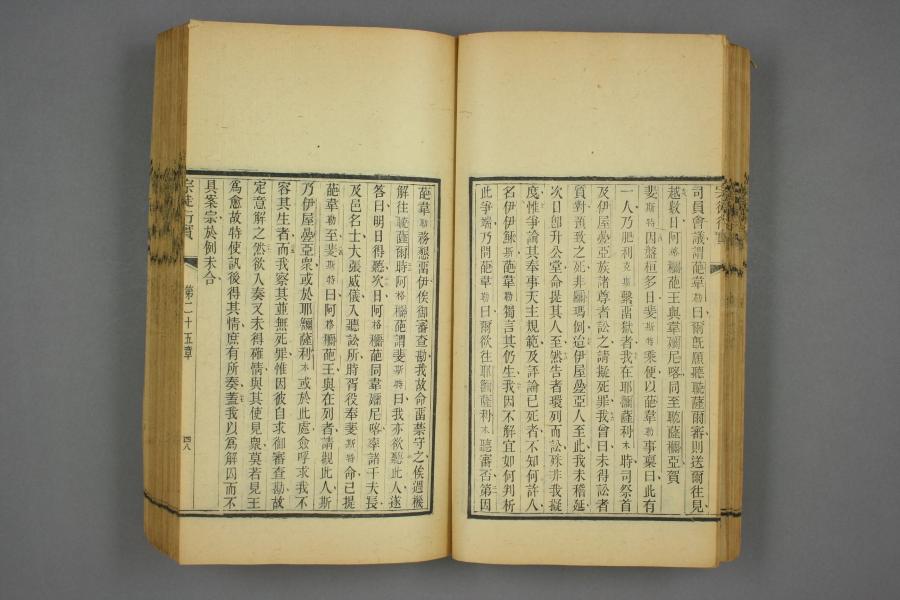 司員會議謂葩韋勒曰爾旣願聽𦗕薩爾審則送爾往見
越數日阿格穪葩王與韋穪尼喀同至𦗕薩穪亞賀
斐斯特因盤桓多日斐斯特乘便以葩韋勒事稟曰此有
一人乃肥利克斯繫畱獄者我在耶穪薩利木時司祭首
及伊屋疊亞族諸尊者訟之請擬死罪我曾曰未得訟者
質對預致之死非穪瑪例迨伊屋疊亞人至此我未稽延
次日卽升公堂命提其人至然告者環列而訟殊非我擬
度惟爭論其奉事天主規範及評論已死者不知何許人
名伊伊穌斯葩韋勒獨言其仍生我因不解宜如何判析
此爭端乃問葩韋勒曰爾欲往耶穪薩利木聽審否第因
葩韋勒務懇畱伊俟御審查勘我故命畱禁守之俟遇機
解往𦗕薩爾時阿格穪葩謂斐斯特曰我亦欲聽此人遂
答曰明日得聽次日阿格穪葩同韋穪尼喀率諸千夫長
及邑名士大張威儀入聽訟所時胥役奉斐斯特命已提
葩韋勒至斐斯特曰阿格穪葩王與在列者請觀此人斯
乃伊屋疊亞衆或於耶穪薩利木或於此處僉呼求我不
容其生者而我察其並無死罪惟因彼自求御審查勘故
定意解之然欲入奏又未得確情與其使見衆莫若見王
爲愈故特使訊後得其情庶有所奏蓋我以爲解囚而不
具案宗於例未合
宗徒行實
第二十五章
四八